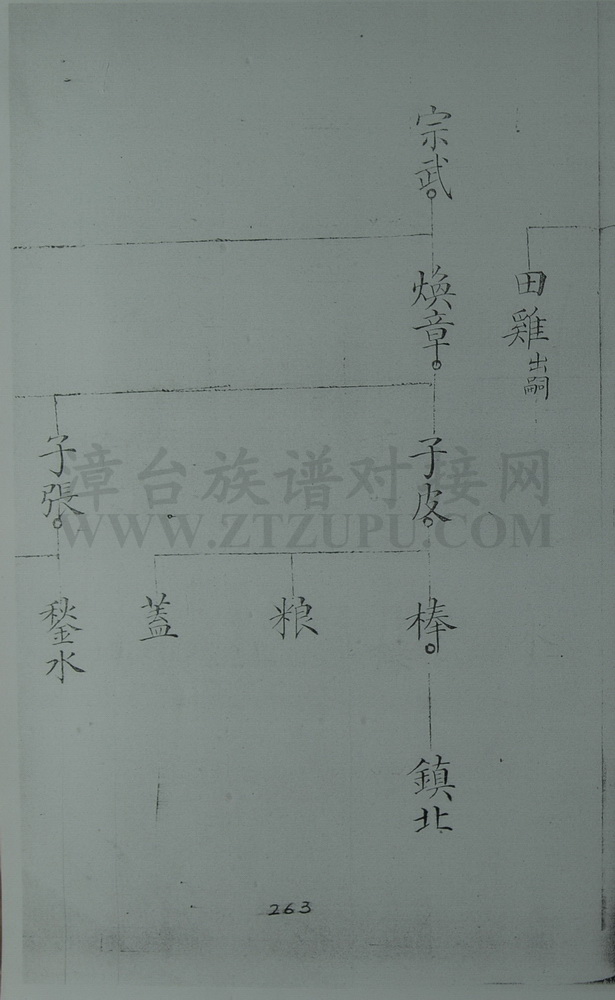 田雞出嗣
宗武
煥章
子皮
子張
棒
粮
蓋
水
鎮北
263
漳台族谱对接网
WWW.ZTZUPU.COM